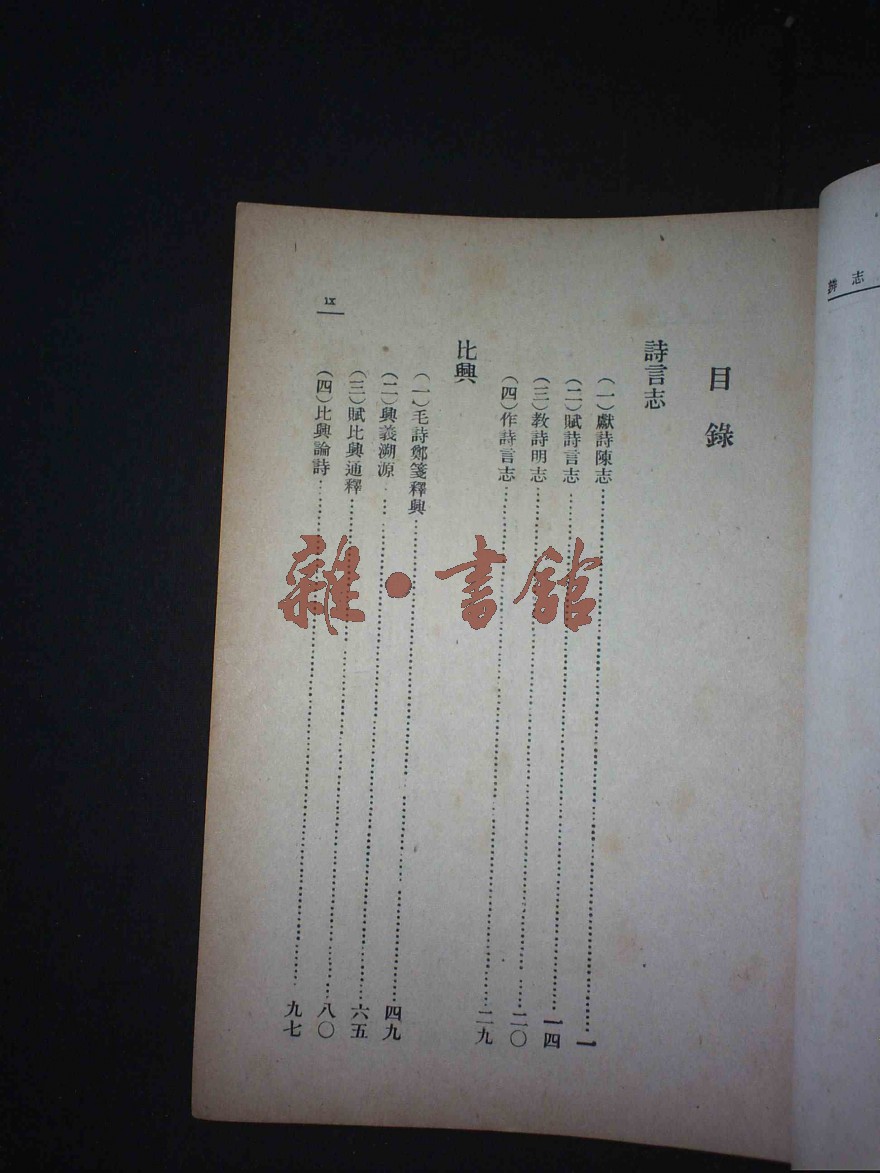 目錄
詩言志
（一）獻詩陳志……一
（二）賦詩言志……一四
（三）教詩明志……二〇
（四）作詩言志……二九
比興
（一）毛詩鄭箋釋興……四九
（二）興義溯源……六五
（三）賦比興通釋……八〇
（四）比興論詩……九七
ix
志
雜·書館